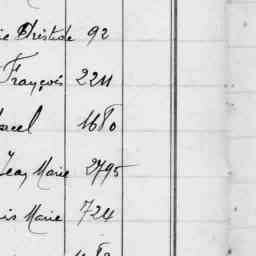 ie Aristide 92
François 2211
arcel 1680
Jean Marie 2795
is Marie 724